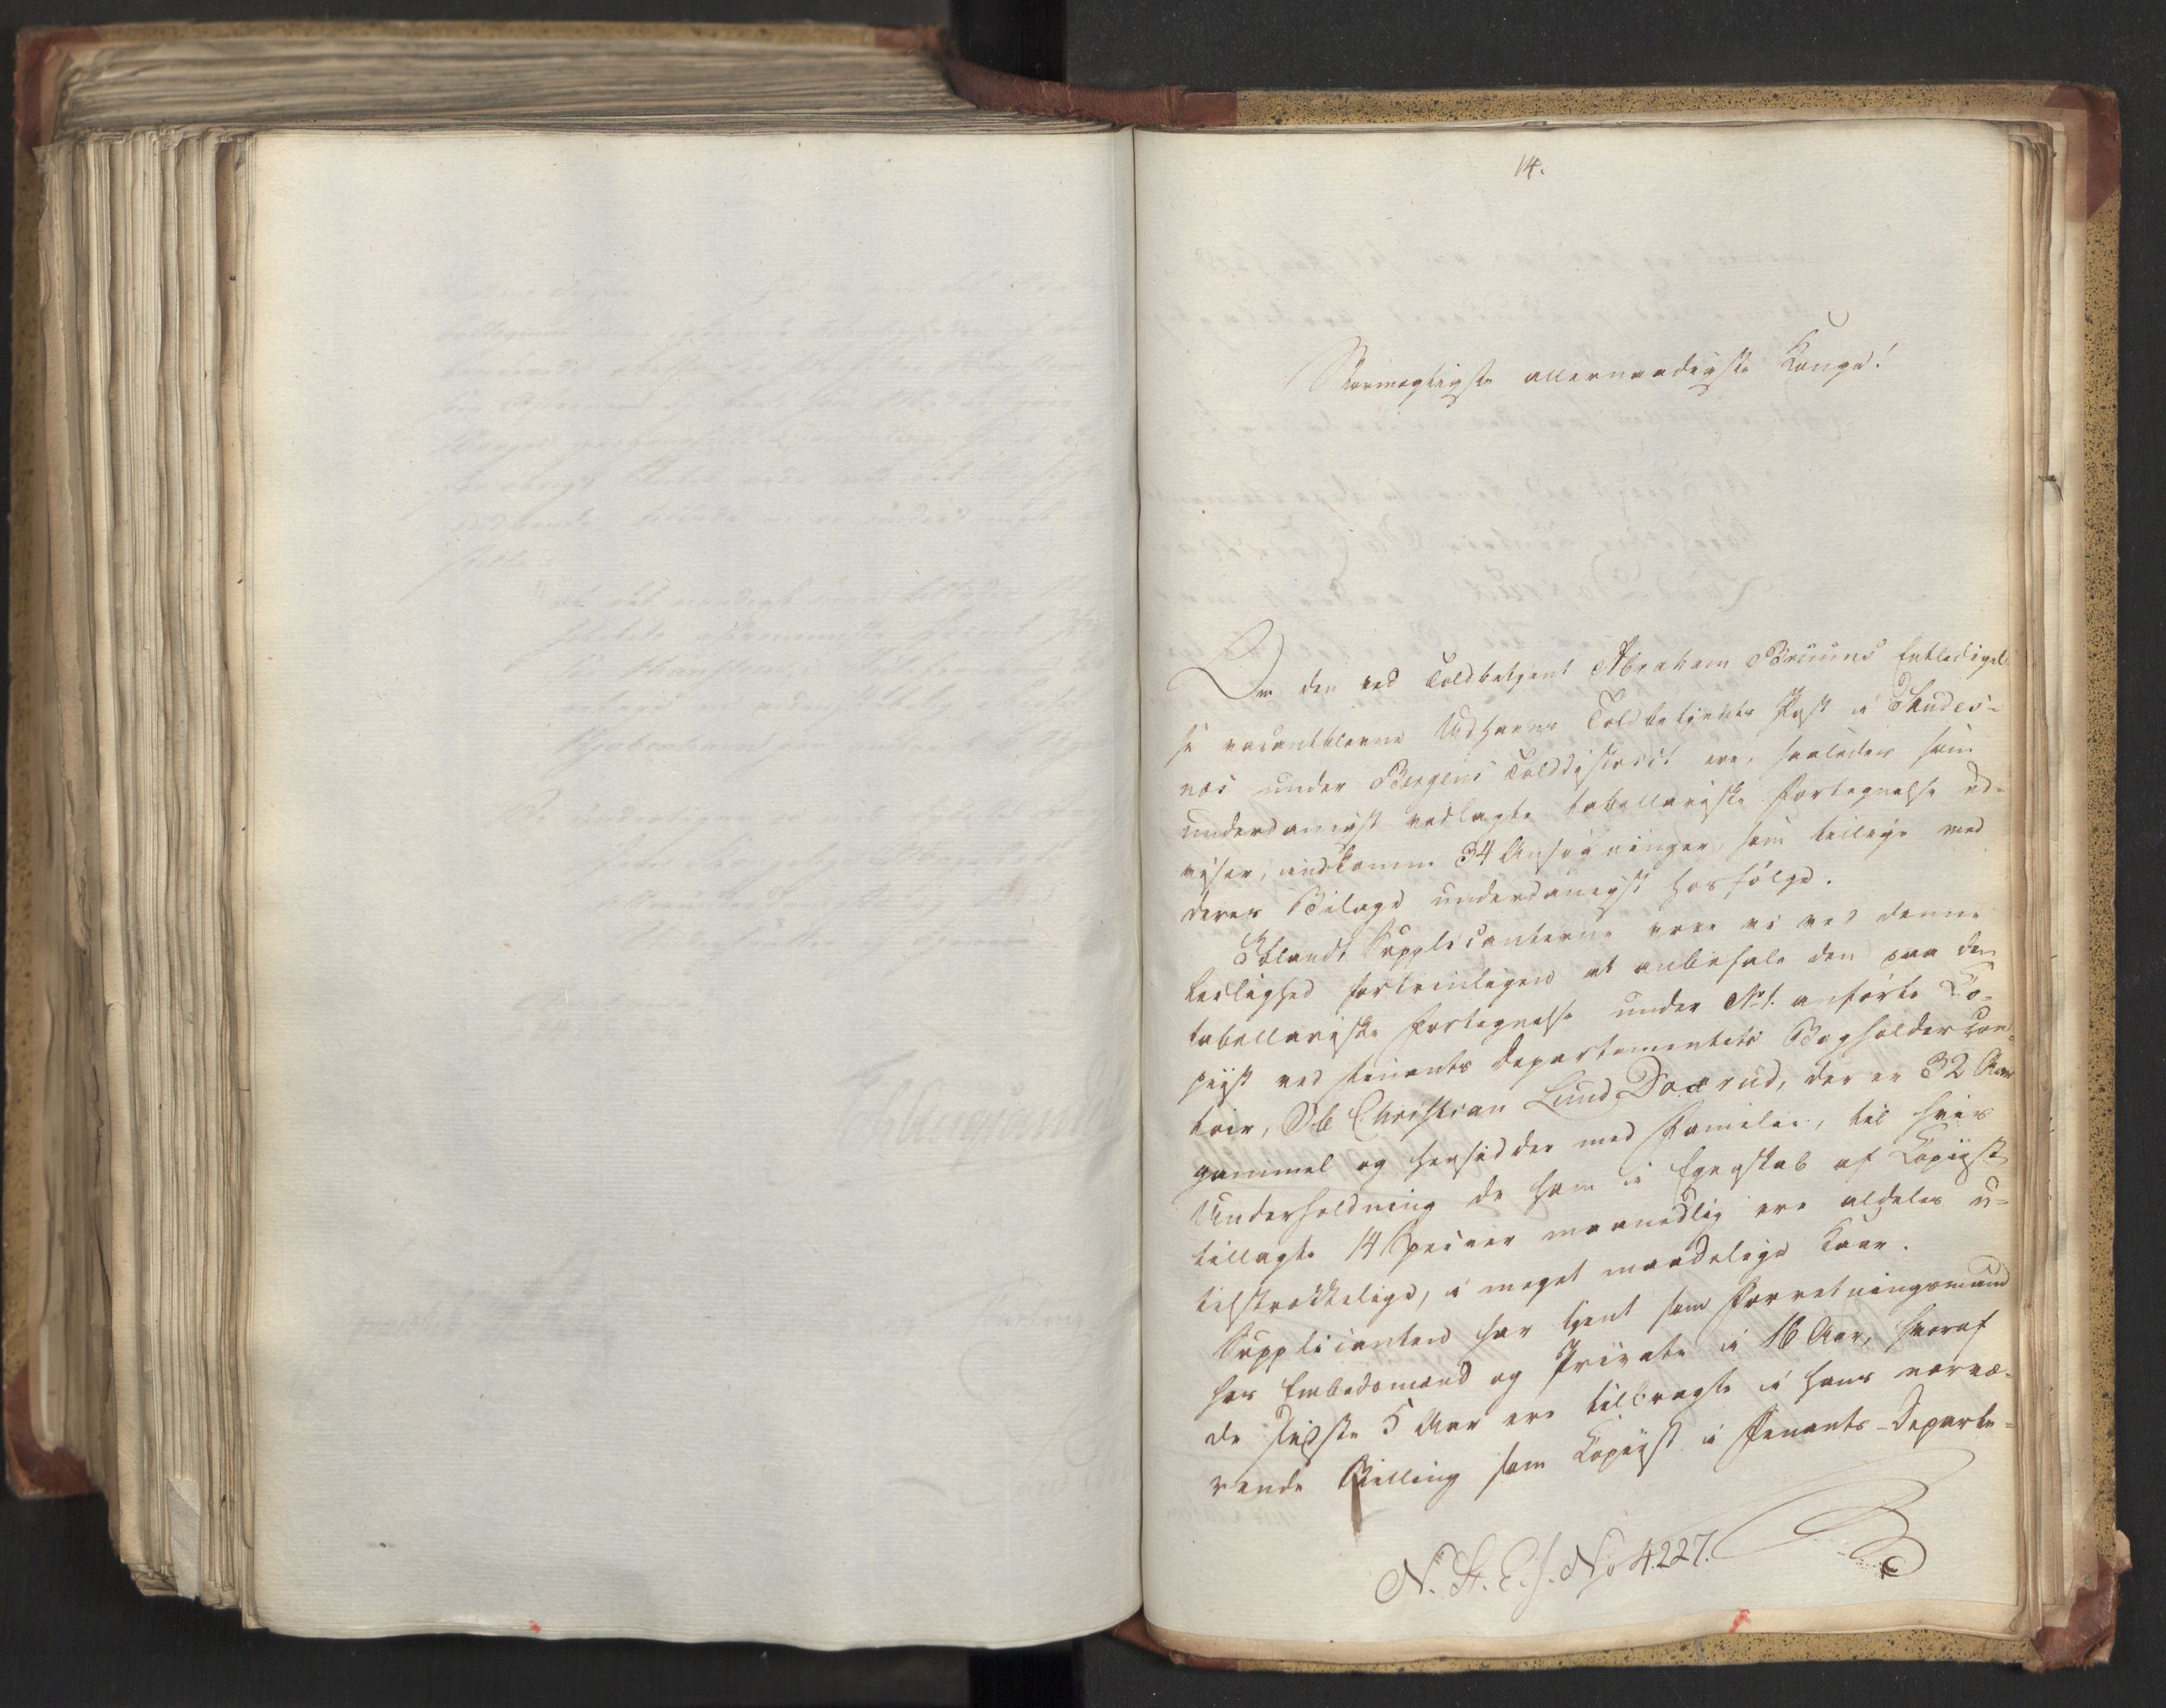 14.
Stormægtigste allernaadigste Konge!
Om den ved Toldbetjent Abraham Bruuns Entledigel-
se vacantblevne Udhavns Toldbetjents Post i Skudes-
næs under Bergens Tolddistrict ere, saaledes som
underdanigst vedlagte tabellariske Fortegnelse ud-
viser, indkomne 34 Ansøgninger, som tillige med
deres Bilage underdanigst hosfølge.
Iblandt Supplicanterne vove vi ved denne
Leilighed fortrinligen at anbefale den paa den
tabellariske Fortegnelse under No 1. anførte Co-
piist ved Finants Departementets Bogholdercon-
toir, Ole Christian Lund Doxrud, der er 32 Aar
gammel og hensidder med Familie, til hvis
Underholdning de ham i Egenskab af Copiist
tillagte 14 Species maanedlig ere aldeles u-
tilstrækkelige, i meget maadelige Kaar.
Supplicanten har tjent som Forretningsmand
hos Embedsmænd og Private i 16 Aar, hvoraf
de sidste 5 Aar ere tilbragte i hans nærvæ-
rende Stilling som Copiist i Finants-Departe-
N. St. E. J. No 4227.